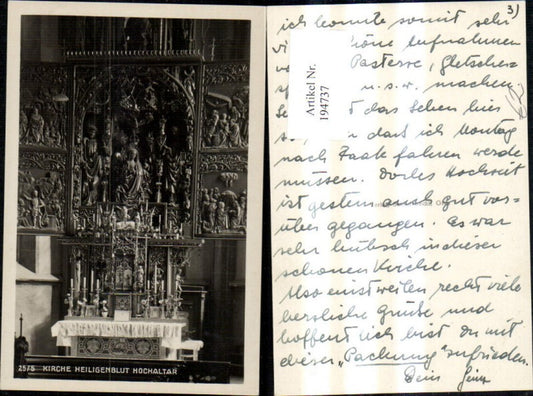 2575 KIRCHE HEILIGENBLUT HOCHALTAR
3)
ich konnte somit sehr
schöne Aufnahmen
Pasterze, Gletscher
u.s.w. machen.
ist das Leben hier
daß ich Montag
nach Faak fahren werde
müssen. Hochzeit
ist gestern auch gut vor-
über gegangen. Es war
sehr hübsch in dieser
schönen Kirche.
Also einstweilen recht viele
herzliche Grüße und
hoffentlich bist Du mit
dieser „Packung" zufrieden.
Dein Heinz
Artikel Nr.
194737